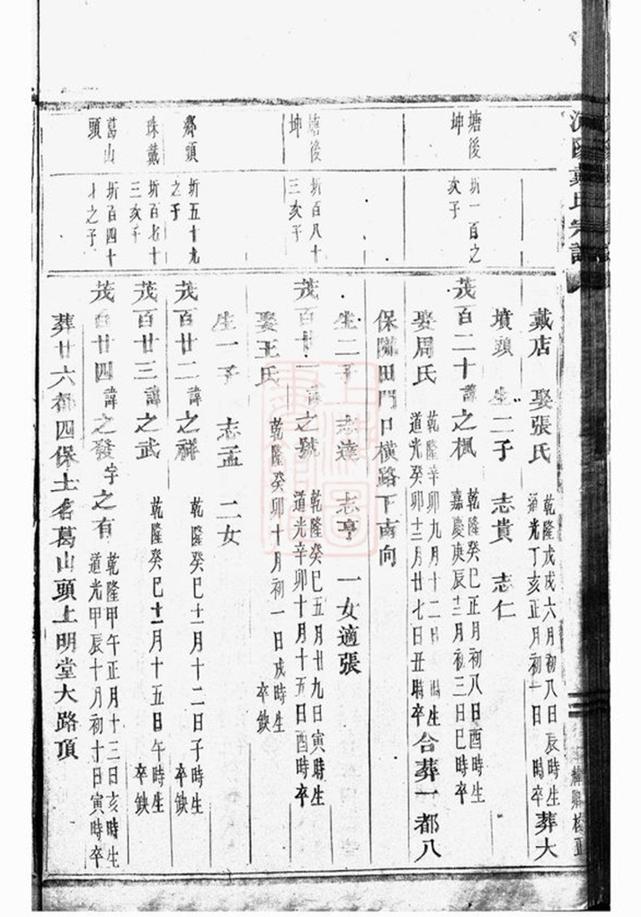 戴氏宗譜
戴店 娶張氏 乾隆戊戌六月初八日辰時生 道光丁亥正月初一日 時卒 葬大
墳頭 生二子 志貴 志仁
塘後坤 圻一百之次子
茂百二十諱之楓 乾隆癸巳正月初八日酉時生 嘉慶庚辰三月初三日巳時卒
娶周氏 乾隆辛卯九月十二日 時生 道光癸卯十三月廿七日丑時卒 合葬一都八
保隴田門口橫路下南向
塘後坤 圻百八十三亥子
生二子 志達 志亨 一女適張
茂百廿一諱之號 乾隆癸巳五月廿九日寅時生 道光辛卯十月十五日酉時卒
娶王氏 乾隆癸卯十月初一日戌時生 卒缺
生一子 志孟 二女
鄉頭 圻五十九之子
茂百廿二諱之祥 乾隆癸巳十一月十二日子時生 卒缺
珠戴 圻百七十三亥子
茂百廿三諱之武 乾隆癸巳十一月十五日午時生 卒缺
葛山頭 圻百四十才之子
茂百廿四諱之發字之有 乾隆甲午正月十三日亥時生 道光甲辰十月初十日寅時卒
葬廿六都四保土名葛山頭上明堂大路頂